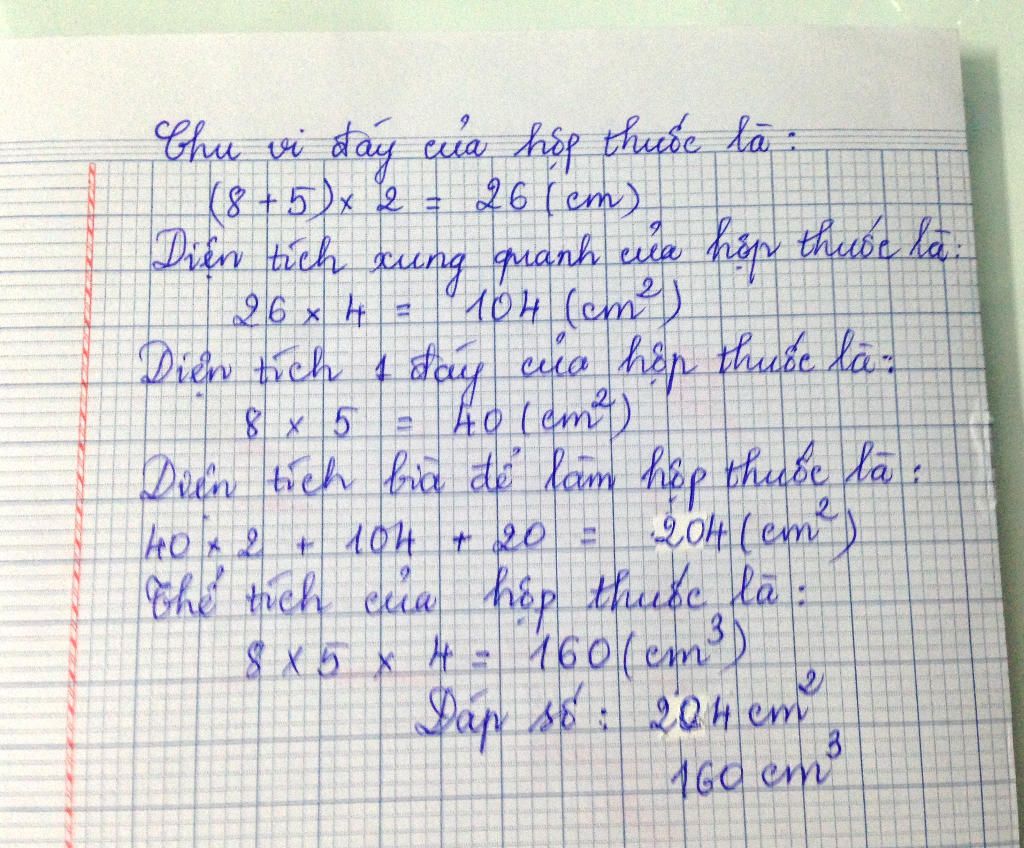 Chu vi đáy của hộp thuốc là:
(8 + 5) × 2 = 26 (cm)
Diện tích xung quanh của hộp thuốc là:
26 × 4 = 104 (cm²)
Diện tích 1 đáy của hộp thuốc là:
8 × 5 = 40 (cm²)
Diện tích bìa để làm hộp thuốc là:
40 × 2 + 104 + 20 = 204 (cm²)
Thể tích của hộp thuốc là:
8 × 5 × 4 = 160 (cm³)
Đáp số: 204 cm²
160 cm³